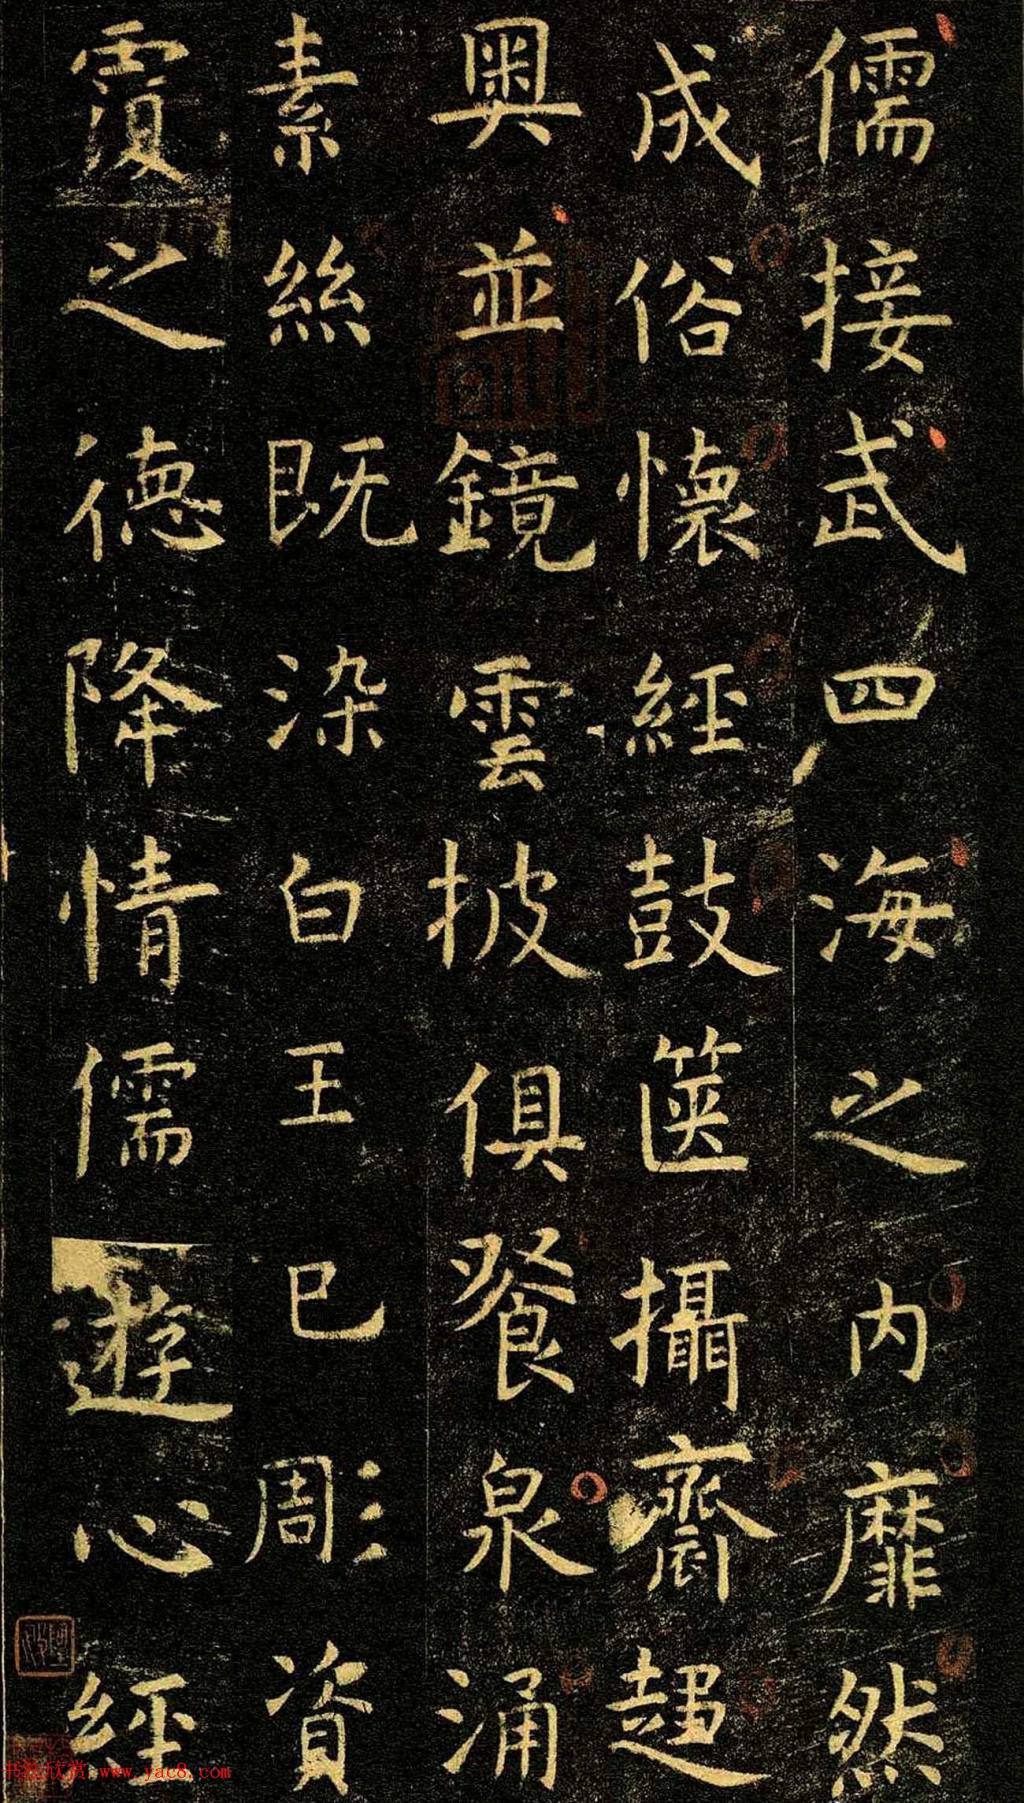 儒接武四海之内靡然
成俗懷經鼓箧攝齋超
奥並鏡雲披俱餐泉涌
素絲既染白玉已彫資
覆之德降情儒遊心經
书法欣赏 www.yac8.com